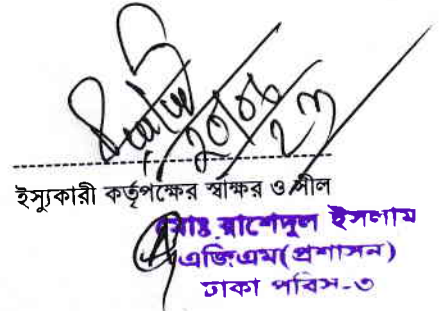 20/08/23
ইস্যুকারী কর্তৃপক্ষের স্বাক্ষর ও সীল
মোঃ রাশেদুল ইসলাম
এজিএম(প্রশাসন)
ঢাকা পবিস-৩